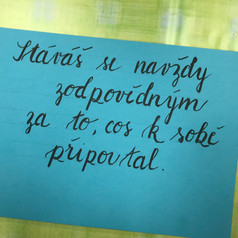 Stáváš se navždy
zodpovídným
za to, cos k sobě
připoutal.